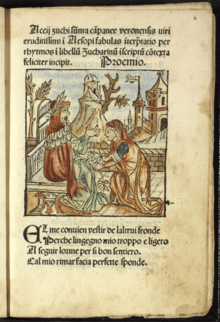 Accij zuchi summa cãpanee veronensis viri
eruditissimi ĩ Aesopi fabulas iterp̃tatio per
rhytmos ĩ libellũ Zucharinũ iscriptũ cõtexta
feliciter incipit. Proemio.
EL me convien vestir de laltrui fronde
Perche lingegno mio troppo e ligero
A seguir lorme per si bon sentiero.
Cal mio rimar facia perfette sponde.